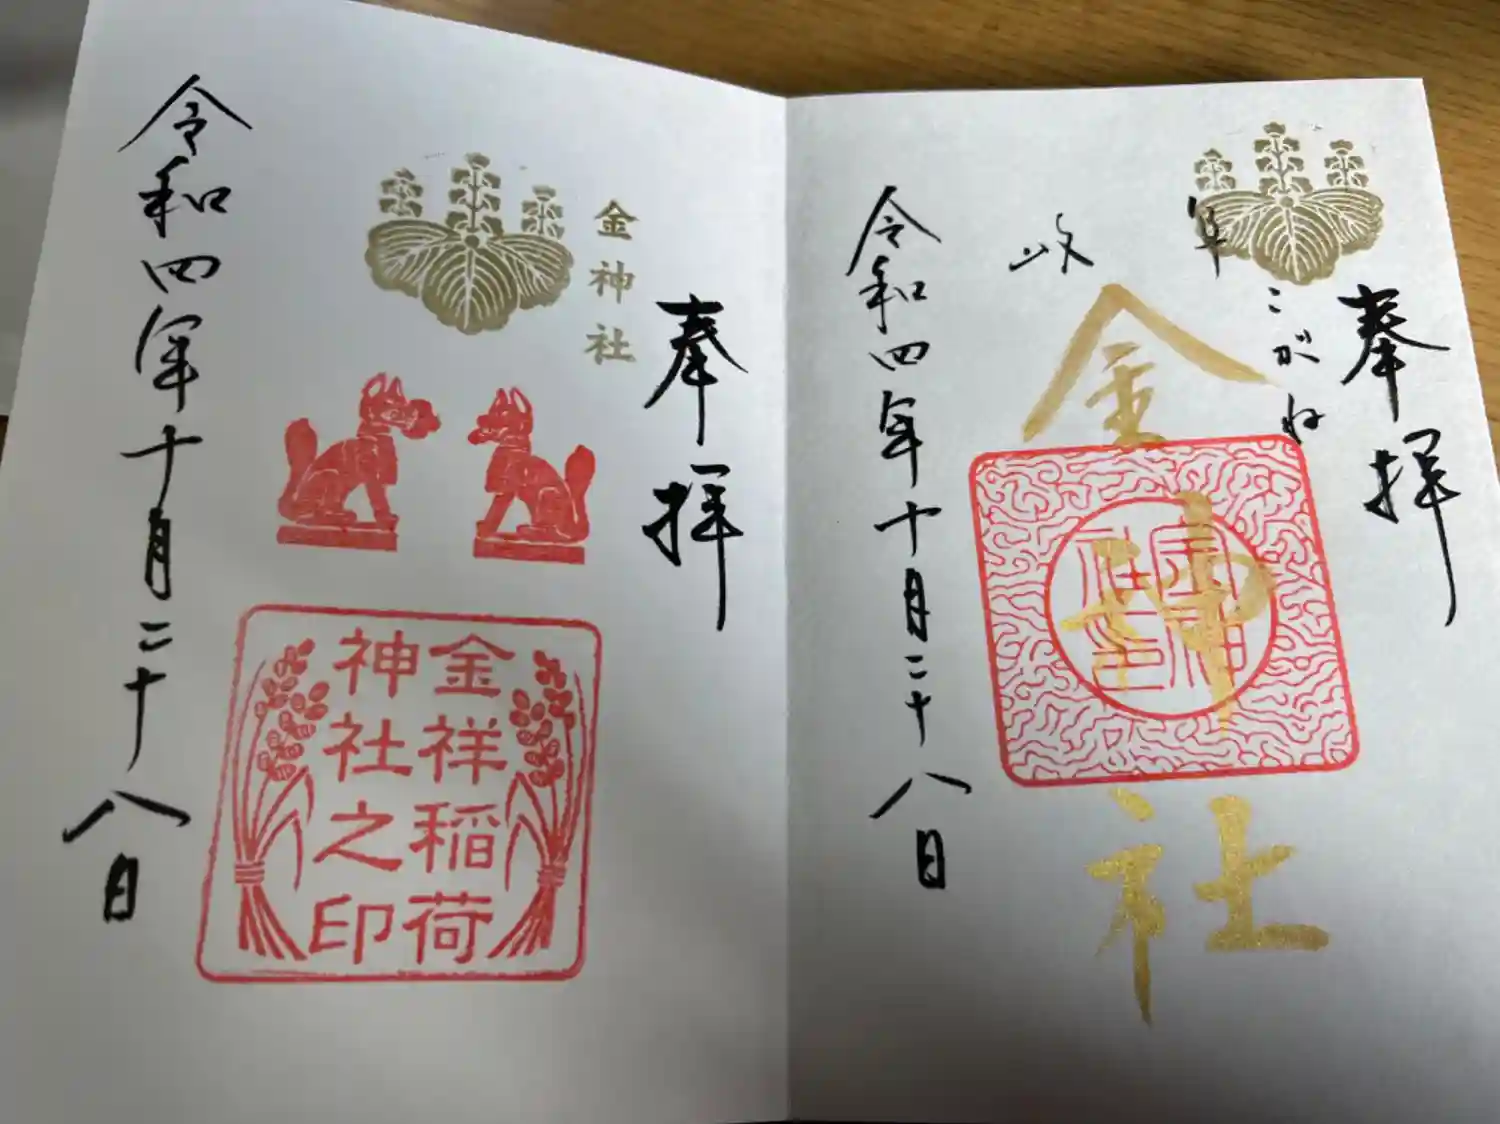 奉拝
こがね
岐阜
金神社
令和四年十月二十八日
奉拝
金神社
金祥稲荷
神社之印
令和四年十月二十八日